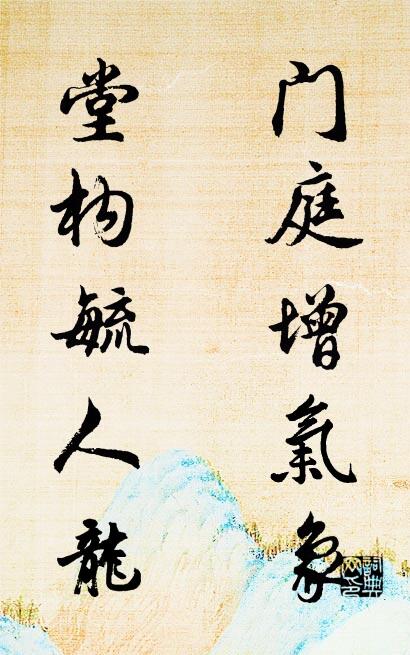 门庭增氣象
堂构毓人龍
詞典网